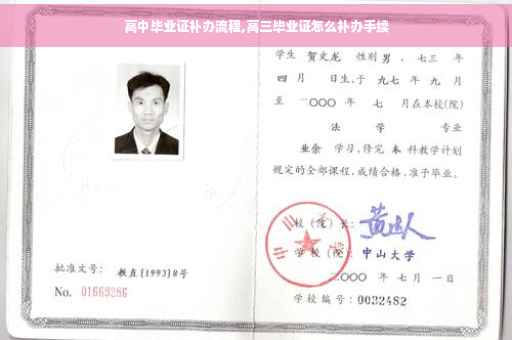 高中毕业证补办流程,高三毕业证怎么补办手续
学生 贺文龙 性别 男 、七三 年
四 月 日生,于 九七 年 九 月
至 二〇〇〇 年 七 月在本校(院)
法 学 专业
业余 学习,修完 本 科教学计划
规定的全部课程,成绩合格,准予毕业。
校(院)长:
学校(院): 中山大学
二〇〇〇 年 七 月 一 日
批准文号: 教直[1993]8号
No. 01669286
学校编号: 0032482